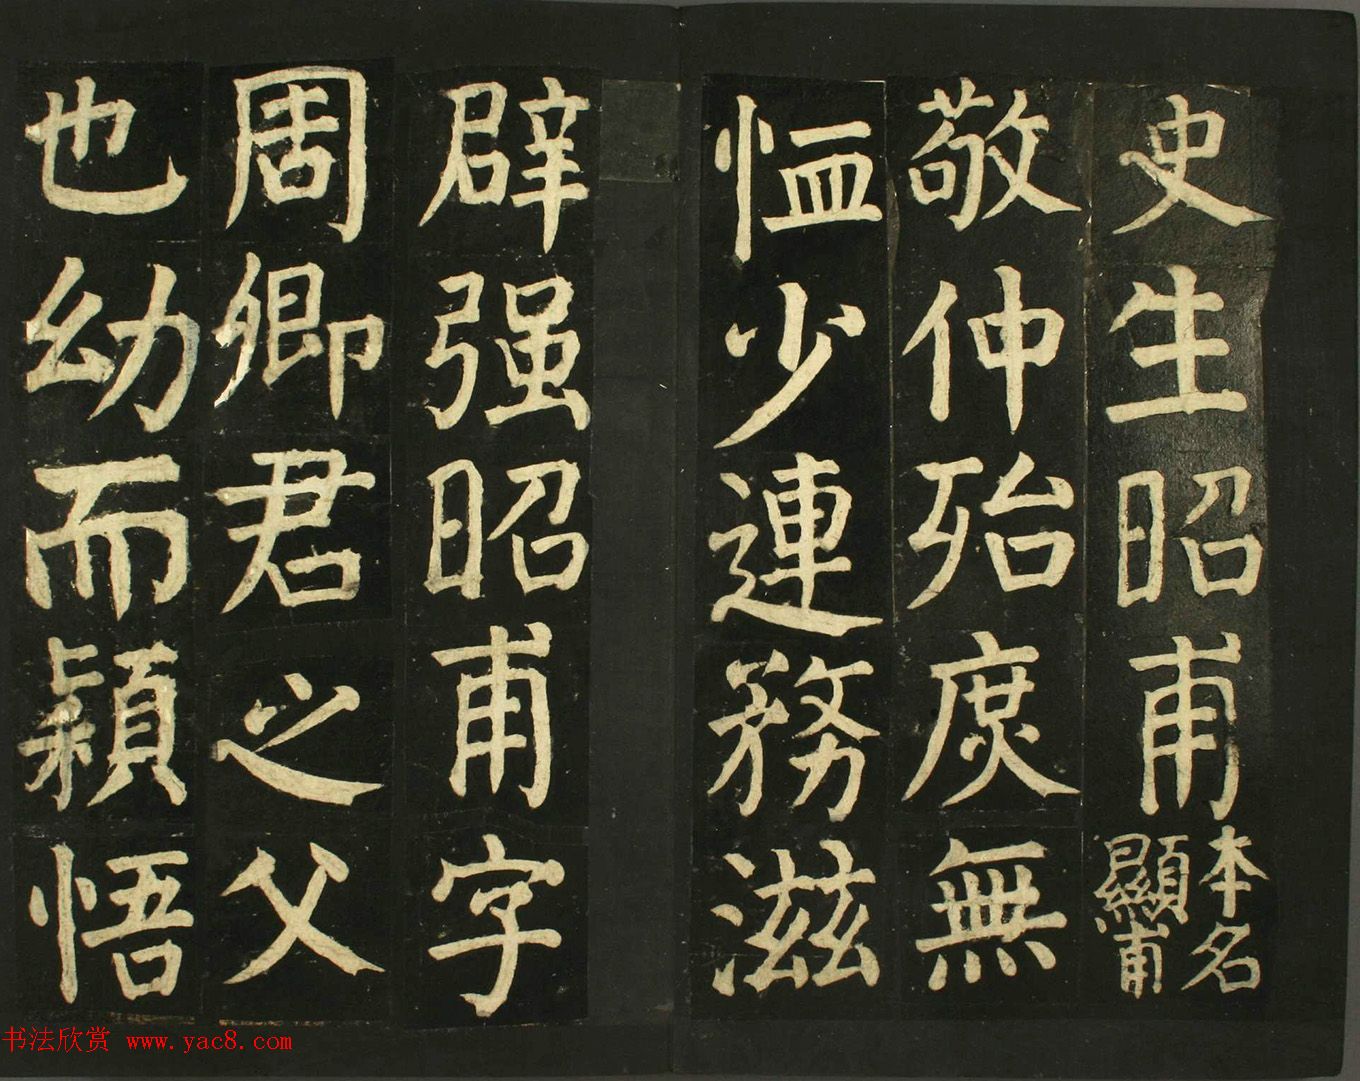 史生昭甫本名顯甫
敬仲殆庶無
恤少連務滋
辟强昭甫字
周卿君之父
也幼而穎悟
书法欣赏 www.yac8.com